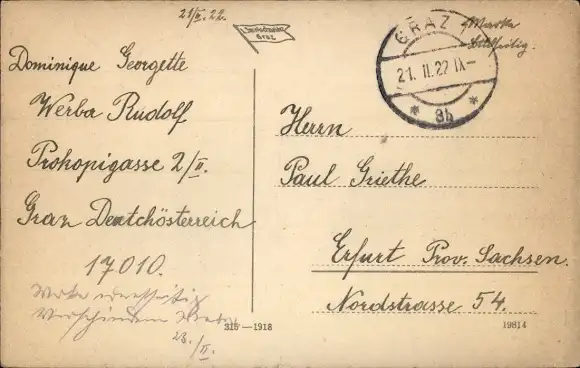 21/II. 22.
Graz
GRAZ 1
21. II. 22 IX–
* 8b *
Marke
Dominique Georgette
Werba Rudolf
Prokopigasse 2/II.
Graz Deutchösterreich
17010.
23./II.
315–1918
Herrn
Paul Griethe
Erfurt Prov. Sachsen.
Nordstrasse 54.
19814